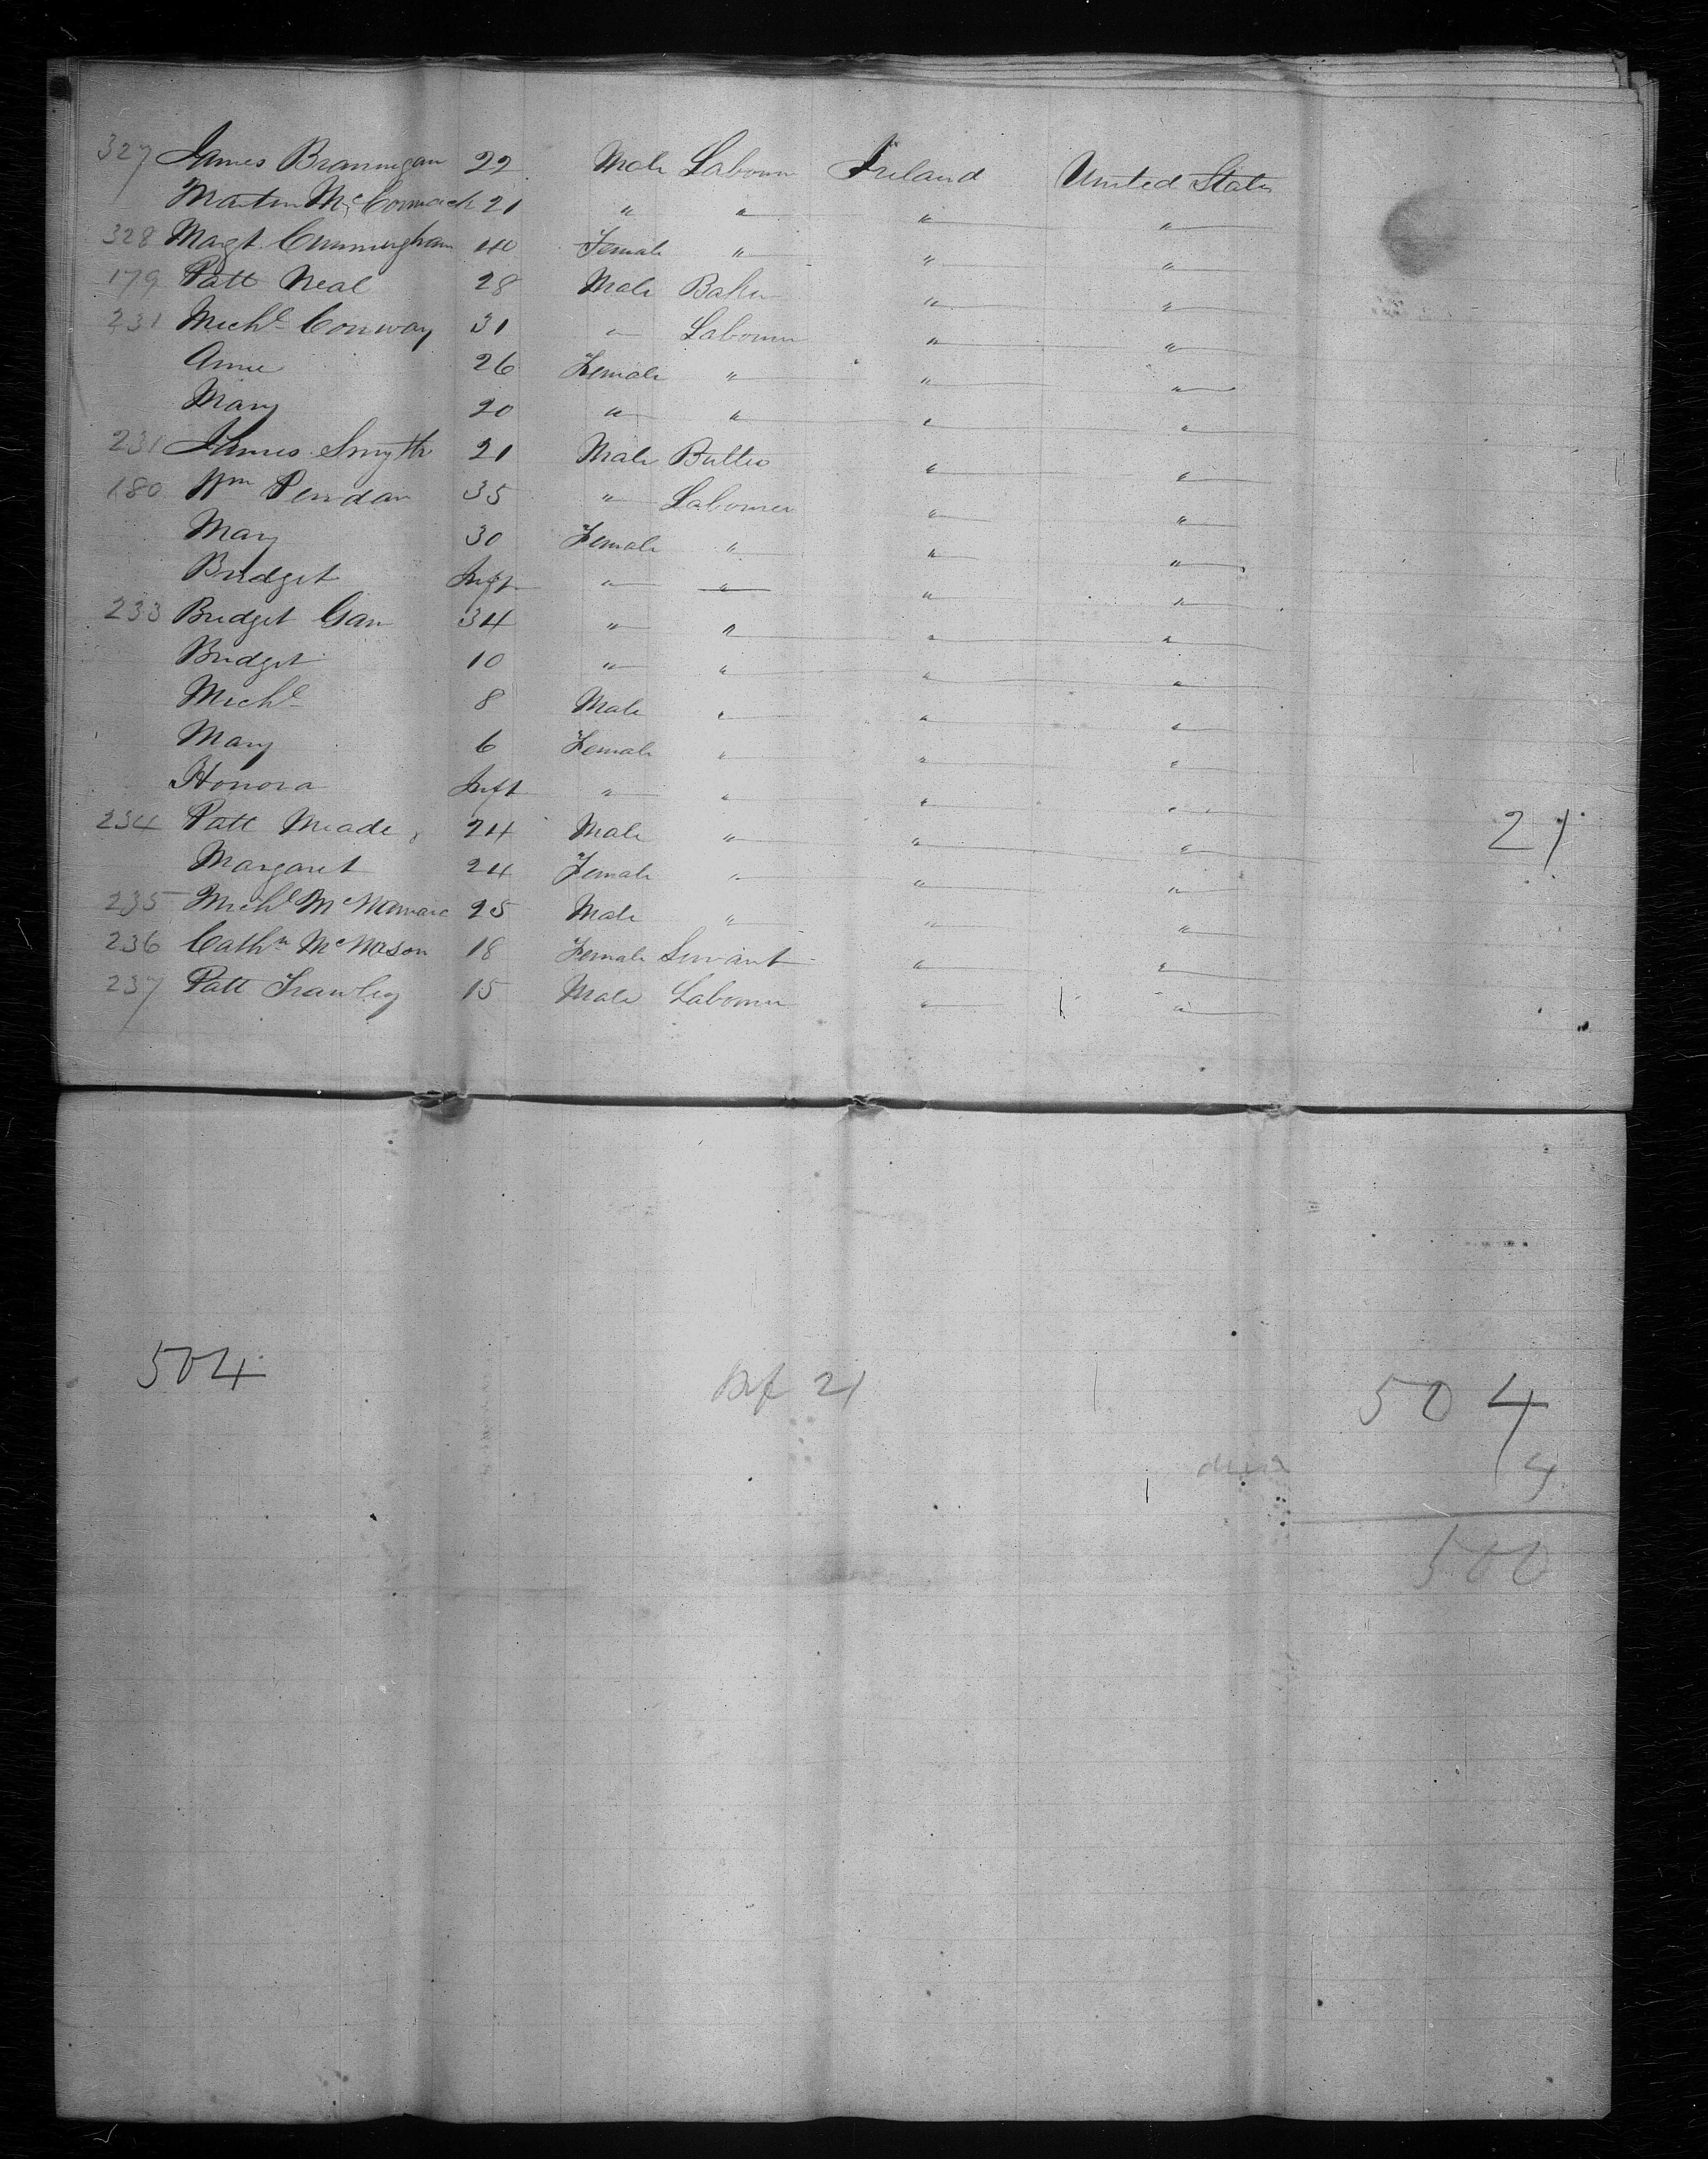 327 James Brannigan 22 Male Labourer Ireland United States
Martin McCormack 21 " " " "
328 Margt. Cunningham 40 Female " " "
179 Patt Neal 28 Male Baker " "
231 Michl Conway 31 " Labourer " "
Anne 26 Female " " "
Mary 20 " " " "
231 James Smyth 21 Male Butler " "
180 Wm 35 " Labourer " "
Mary 30 Female " " "
Bridget Inft " " " "
233 Bridget Gan 34 " " " "
Bridget 10 " " " "
Michl 8 Male " " "
Mary 6 Female " " "
Honora Inft " " " "
234 Patt Meade 24 Male " " " 21
Margaret 24 Female " " "
235 Michl 25 Male " " "
236 Cathn McMason 18 Female Servant " "
237 Patt Frawley 15 Male Labourer " "
504 Inf 21 504
4
500